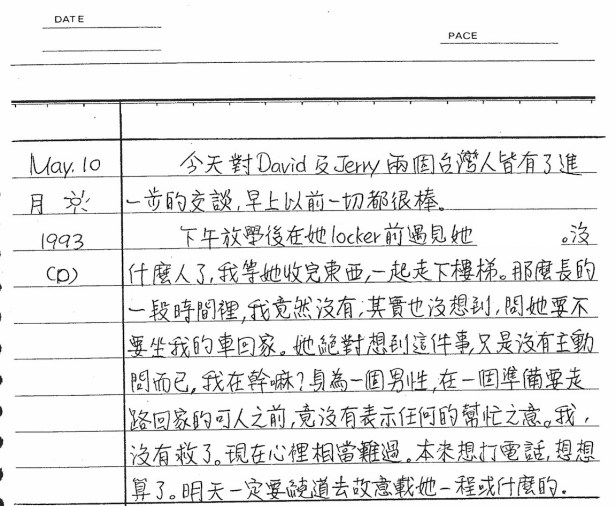 DATE
PACE
May. 10 今天對David及Jerry兩個台灣人皆有了進
月 一步的交談,早上以前一切都很棒。
1993 下午放學後在她locker前遇見她 。沒
(D) 什麼人了,我等她收完東西,一起走下樓梯。那麼長的
一段時間裡,我竟然沒有;其實也沒想到,問她要不
要坐我的車回家。她絕對想到這件事,只是沒有主動
問而已,我在幹嘛?身為一個男性,在一個準備要走
路回家的可人之前,竟沒有表示任何的幫忙之意。我,
沒有救了。現在心裡相當難過。本來想打電話,想想
算了。明天一定要繞道去故意載她一程或什麼的.